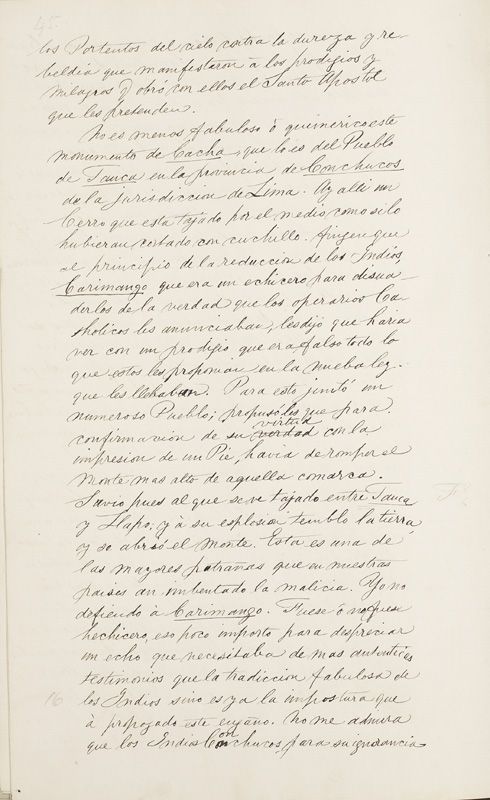 45-
los Portentos del cielo contra la dureza y re
beldia que manifestaron à los prodigios y
milagros q obró con ellos el Santo Apostol
que les pretenden.
No es menos fabuloso ò quimerico este
monumento de Cacha, que lo es del Pueblo
de Tauca en la provincia de Conchucos
de la jurisdiccion de Lima. Ay alli un
Cerro que esta tajado por el medio como si lo
hubieran cortado con cuchillo. Fingen que
al principio de la reduccion de los Indios,
Carimango que era un echicero para desua-
dirlos de la verdad que los operarios Ca
tholicos les anunciaban, les dijo que haria
ver con un prodigio que era falso todo lo
que estos les proponian en la nueba ley.
que les llebaban. Para esto juntó un
numeroso Pueblo; propusoles que para
confirmacion de su verdad con la
virtud
impresion de un Pie, havia de romper el
Monte mas alto de aquella comarca.
Savio pues al que se ve tajado entre Tauca
y Llapo, y à su explosion temblo la tierra
y se abrió el monte. Esta es una de
las mayores patrañas que en nuestros
paises an imbentado la malicia. Yo no
defiendo à Carimango. Fuese ó no fuese
hechicero, eso poco importa para despreciar
un echo que necesitaba de mas autenticos
testimonios que la tradiccion fabulosa de
16 los Indios sino es ya la impostura que
à propagado este engaño. No me admira
que los Indios Conchucos, para su ignorancia